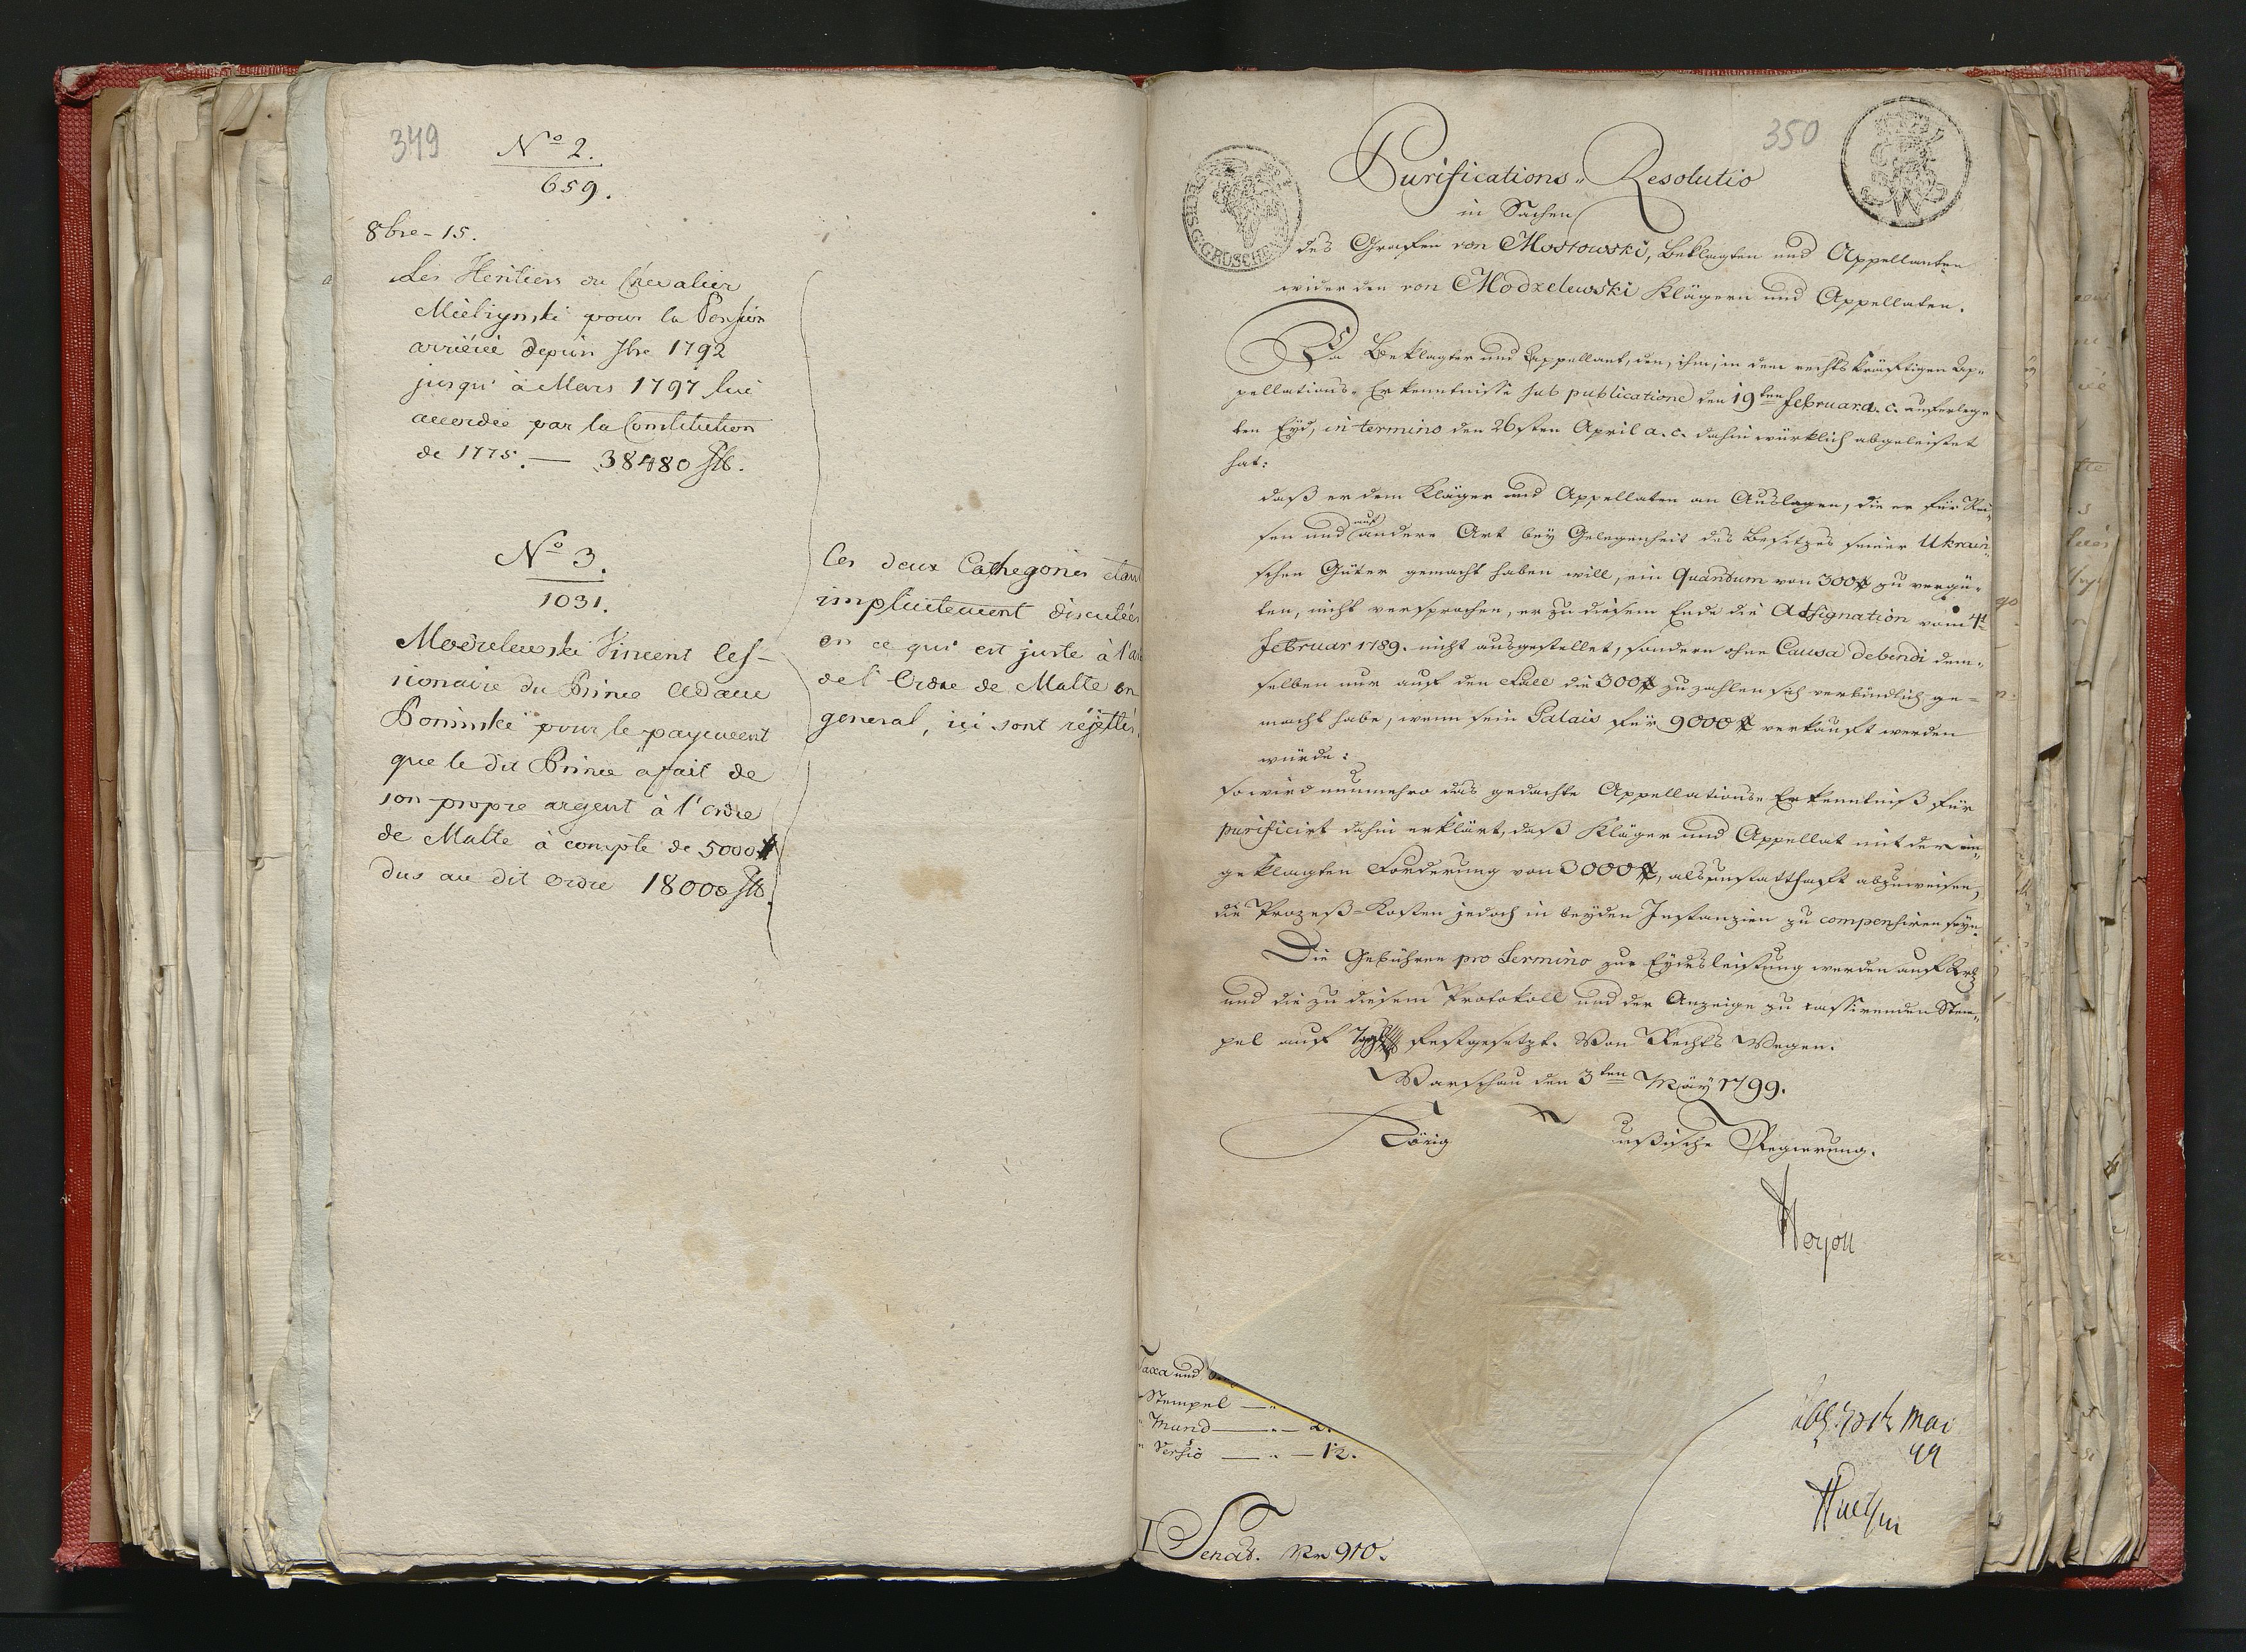 349
No 2.
659.
8bre - 15.
Les Heritiers du Chevalier
Mielzynski pour la Pension
arriérée depuis 7bre 1792
jusqu'à Mars 1797 lui
accordée par la Constitution
de 1775. — 38480 fl.
No 3.
1031.
Modzelewski Vincent Ces-
sionaire du Prince Adam
Poninski pour le payement
que le dit Prince a fait de
son propre argent à l'ordre
de Malte à compte de 5000 #
dus au dit ordre 18000 fl.
Ces deux Cathegories étant
implicitement discutées
en ce qui est juste à l'
de l'Ordre de Malte en
general, ici sont rejettés.
350
GROSCHE
Purifications-Resolutio
in Sachen
des Grafen von Mostowski, Beklagten und Appellanten
wider den von Modzelewski Klägern und Appellaten.
Da Beklagter und Appellant, den, ihm, in dem rechtskräftigen Ap-
pellations-Erkenntnisse sub publicatione den 19ten februar a. c. auferleg-
ten Eyd, in termino den 26sten April a. c. dahin würklich abgeleistet
hat:
daß er dem Kläger und Appellaten an Auslagen, die er für Rei-
sen und auf andere Art bey Gelegenheit des Besitzes seiner Ukrain-
schen Güter gemacht haben will, ein Quantum von 300 # zu vergü-
ten, nicht versprochen, er zu diesem Ende die Assignation vom 4t
Februar 1789. nicht ausgestellet, sondern ohne Causa debendi dem-
selben nur auf den Fall die 300 # zu zahlen sich verbindlich ge-
macht habe, wenn sein Palais für 9000 # verkauft werden
würde:
so wird nunmehro das gedachte Appellations-Erkenntniß für
purificirt dahin erklärt, daß Kläger und Appellat mit der ein-
geklagten Forderung von 3000 #, als unstatthaft abzuweisen,
die Prozeß-Kosten jedoch in beyden Instanzien zu compensiren seyn.
Die Gebühren pro Termino zur Eydesleistung werden auf
und die zu diesem Protokoll und der Anzeige zu cassirenden Stem-
pel auf festgesetzt. Von Rechts Wegen.
Warschau den 3ten May 1799.
König ußische Regierung.
Taxa und
Stempel —
Mund — 2.
Versio — 12.
Mai
99
I Senat. Nr 910.